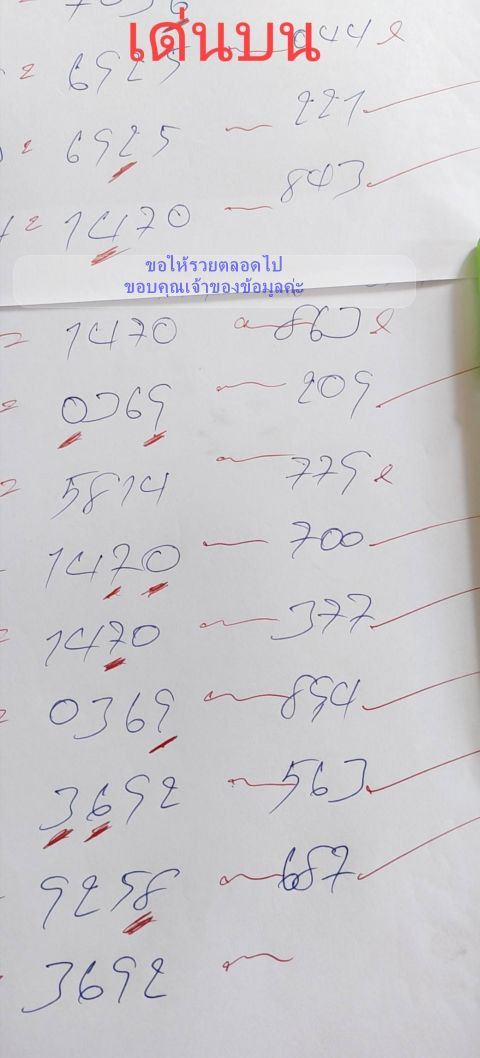 เด่นบน
044
= 6925
= 6925 221
= 1470 843
ขอให้รวยตลอดไป
ขอบคุณเจ้าของข้อมูลค่ะ
= 1470 863
= 0369 209
= 5814 779
1470 700
= 1470 377
= 0369 894
3692 563
9258 687
3692